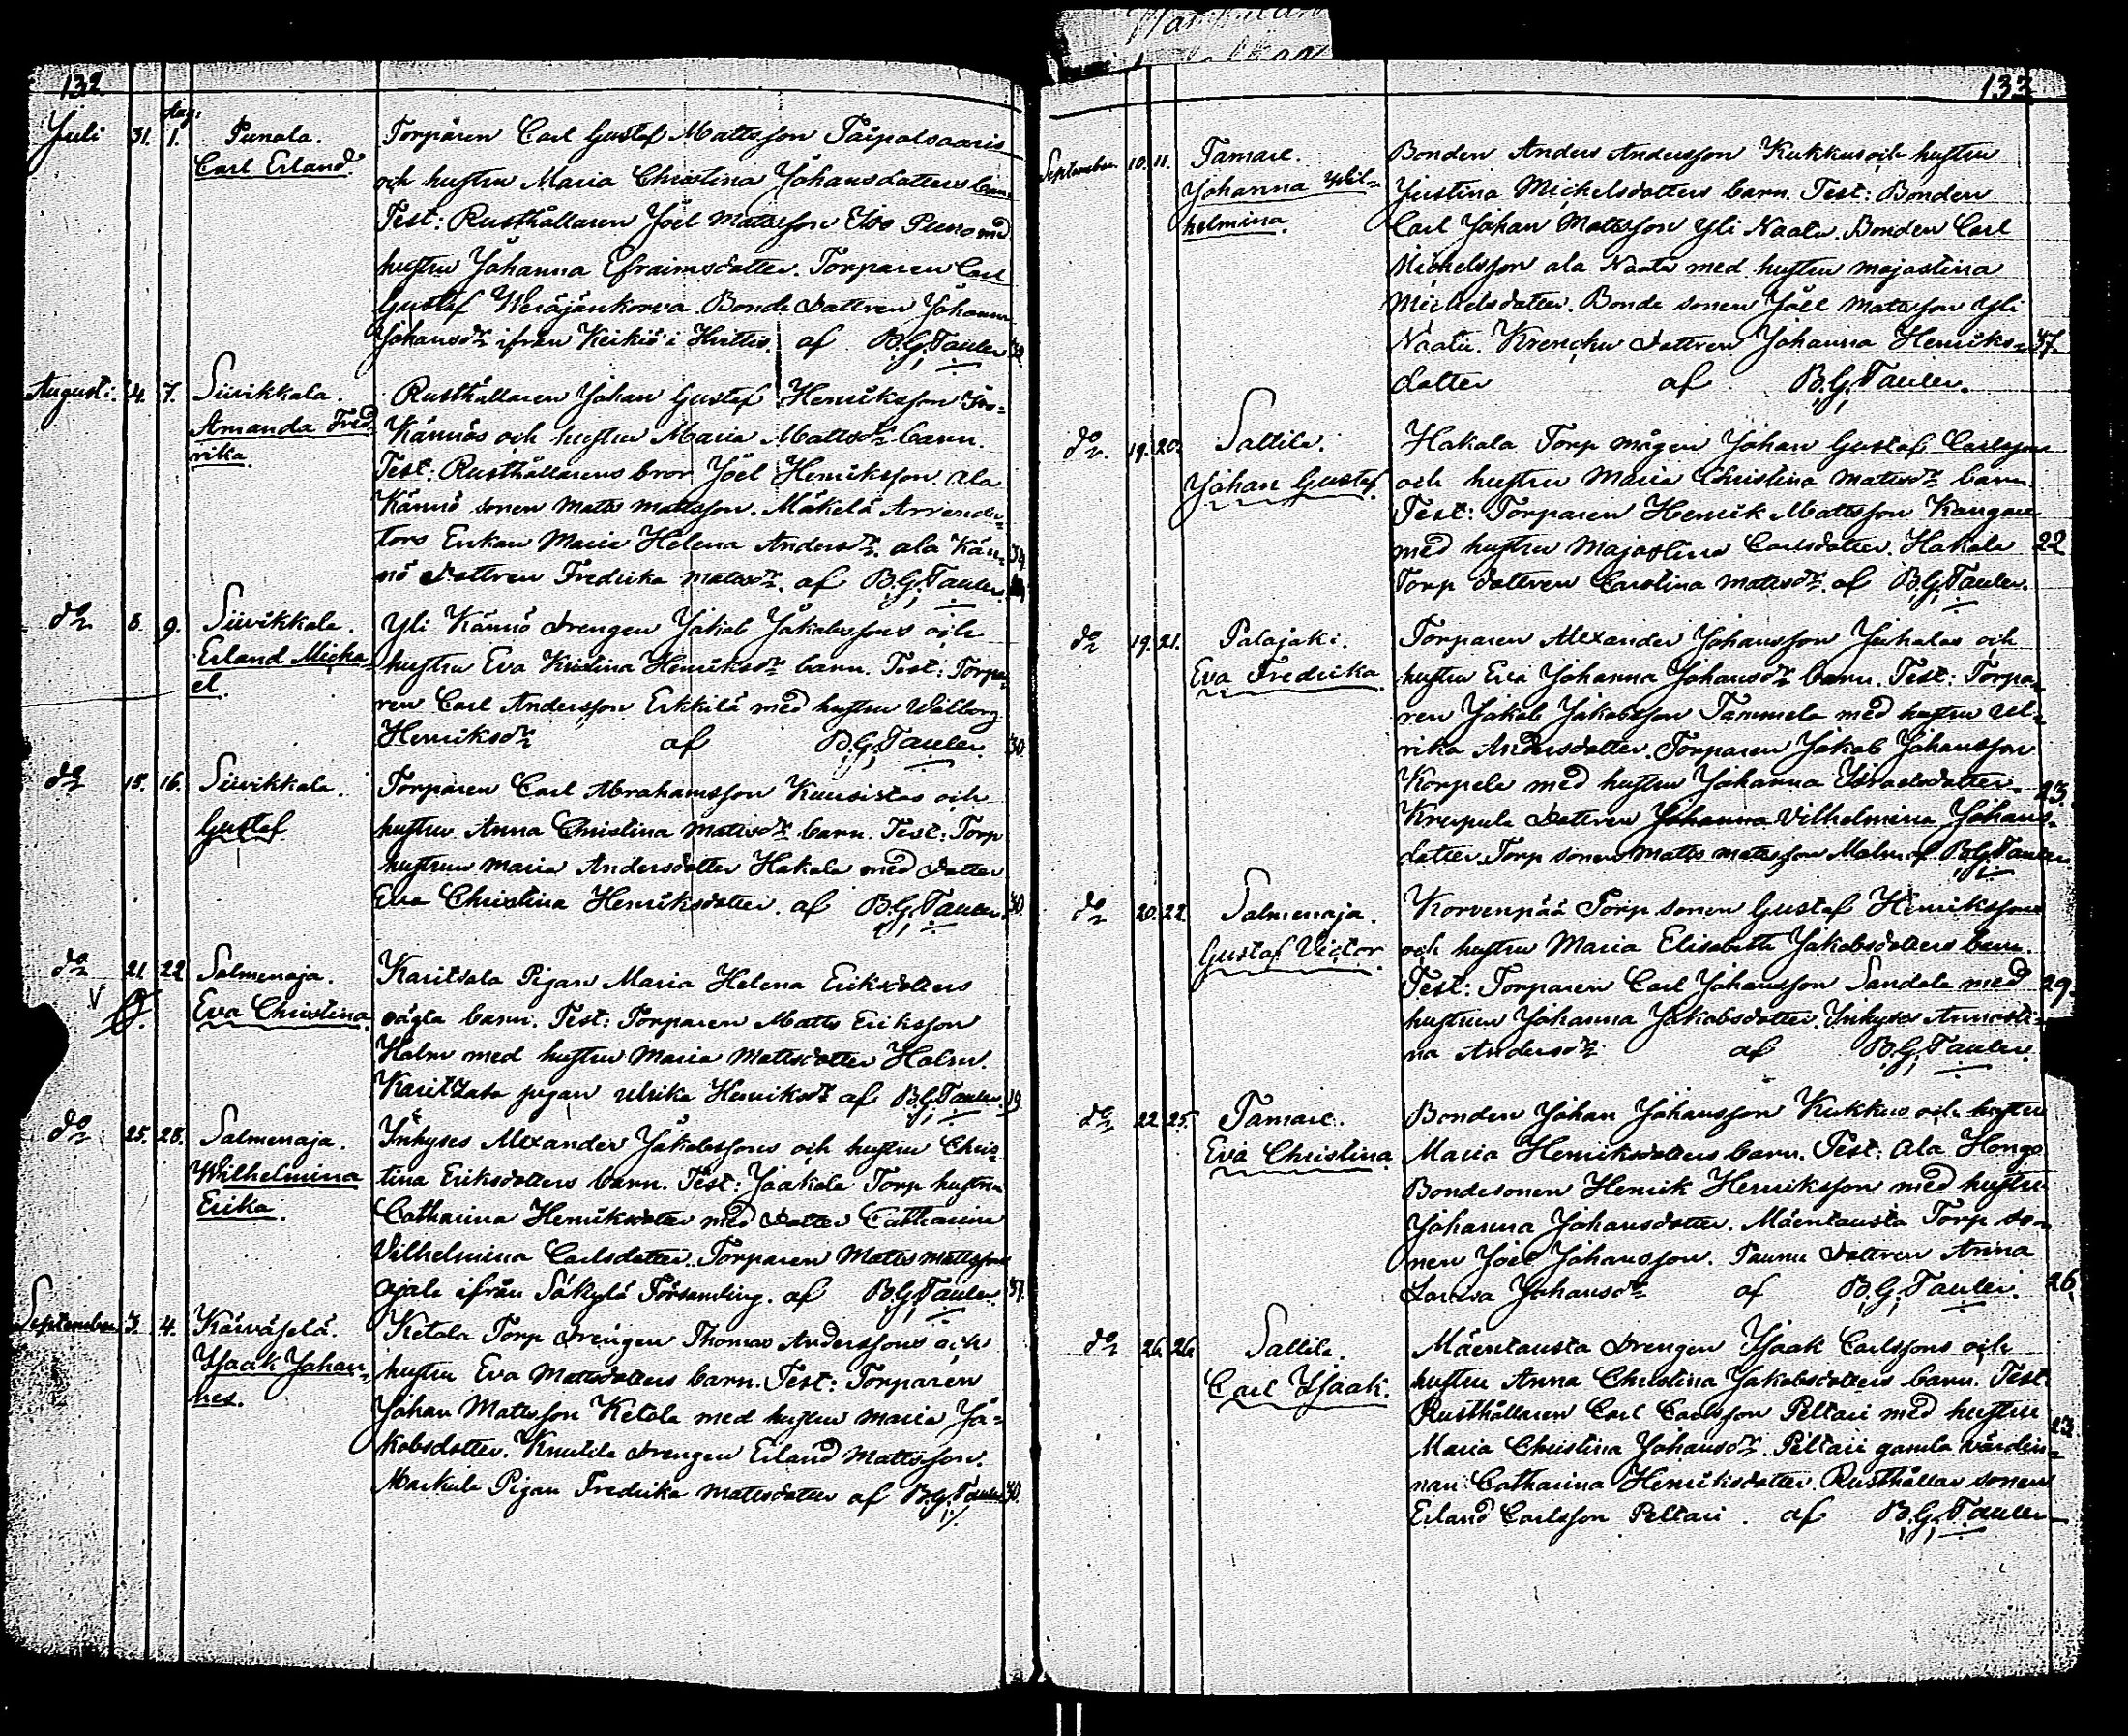 132
Aug:
Juli 31. 1. Punola. Torparen Carl Gustaf Mattsson Taipalsaaris
Carl Erland. och hustru Maria Christina Johansdotters barn.
Test: Rusthållaren Joel Mattsson Uso Puno med
hustru Johanna Efraimsdotter. Torparen Carl
Gustaf Weräjänkorwa. Bonde dottren Johanna
Johansdr ifrån Keikiö i Hvittis. af B.G. Tauler
Augusti. 4. 7. Siivikkala. Rusthållaren Johan Gustaf Henriksson Iso-
Amanda Fred- Kännös och hustru Maria Mattsdr barn.
rika. Test: Rusthållarens bror Joel Henriksson. Ala
Kännö sonen Matts Mattsson. Mäkelä Arrenda-
tors Enkan Maria Helena Andersdr. ala Kän- 34
nö dottren Fredrika Mattsdr. af B.G. Tauler.
do 8. 9. Siivikkala. Yli Kännö drengen Jakob Jakobssons och
Erland Micka- hustru Eva Kristina Henriksdr barn. Test: Torpa-
el. ren Carl Andersson Erkkilä med hustru Walborg
Henriksdr af B.G. Tauler. 30
do 15. 16. Siivikkala. Torparen Carl Abrahamsson Kuusistos och
Gustaf. hustru Anna Christina Mattsdr barn. Test: Torp
hustrun Maria Andersdotter Hakala med dotter
Eva Christina Henriksdotter. af B.G. Tauler. 30.
do 21 22 Salmenaja. Karitsala Pigan Maria Helena Eriksdotters
V Eva Christina. oägta barn. Test: Torparen Matts Eriksson
Holm med hustru Maria Mattsdotter Holm.
Karitsala pigan Ulrika Henriksdr af B.G. Tauler. 19
do 25. 28. Salmenaja. Inhyses Alexander Jakobssons och hustru Chris-
Wilhelmina tina Eriksdotters barn. Test: Jaakola Torp hustrun
Erika. Catharina Henriksdotter med dotter Catharina
Vilhelmina Carlsdotter. Torparen Matts Mattsson
Ojala ifrån Säkylä Församling. af B.G. Tauler. 37.
September 3. 4. Karwasela. Ketola Torp drengen Thomas Anderssons och
Isaak Johan- hustru Eva Mattsdotters barn. Test: Torparen
nes. Johan Mattsson Ketola med hustru Maria Ja-
kobsdotter. Knutila drengen Erland Mattsson.
Markula Pigan Fredrika Mattsdotter af B.G. Tauler 30.
133
September 10. 11. Tamare. Bonden Anders Andersson Kukkus och hustru
Johanna Wil- Justina Michelsdotters barn. Test: Bonden
helmina. Carl Johan Mattsson Yli Naatu. Bonden Carl
Michelsson ala Naatu med hustru Majastina
Michelsdotter. Bonde sonen Joel Mattsson Yli
Naatu. Krenchu dottren Johanna Henriks- 37.
dotter af B.G. Tauler.
do. 19. 20. Sallila. Hakala Torp mågen Johan Gustaf Carlssons
Johan Gustaf. och hustru Maria Christina Mattsdr barn.
Test: Torparen Henrik Mattsson Kangare
med hustru Majastina Carlsdotter. Hakala 22
Torp dottren Carolina Mattsdr. af B.G. Tauler.
do 19. 21. Palajoki. Torparen Alexander Johansson Juhalas och
Eva Fredrika. hustru Eva Johanna Johansdr barn. Test: Torpa-
ren Jakob Jakobsson Tammela med hustru Ul-
rika Andersdotter. Torparen Jakob Johansson
Korpela med hustru Johanna Israelsdotter. 23.
Kruupula dottren Johanna Vilhelmina Johans-
dotter. Torp sonen Matts Mattsson Malm af B.G. Tauler.
do 20. 22. Salmenaja. Korvenpää Torp sonen Gustaf Henrikssons
Gustaf Victor. och hustru Maria Elisabeth Jakobsdotters barn.
Test: Torparen Carl Johansson Sandala med 29.
hustrun Johanna Jakobsdotter. Inhyses Annasti-
na Andersdr af B.G. Tauler.
do 22. 25. Tamare. Bonden Johan Johansson Kukkus och hustru
Eva Christina Maria Henriksdotters barn. Test: Ala Hongo
Bondesonen Henrik Henriksson med hustru
Johanna Johansdotter. Mäentausta Torp so-
nen Joel Johansson. Paunu dottren Anna
Lovisa Johansdr af B.G. Tauler. 26.
do 26. 26 Sallila. Mäentausta drengen Isaak Carlssons och
Carl Isaak. hustru Anna Christina Jakobsdotters barn. Test:
Rusthållaren Carl Carlsson Peltari med hustru 13.
Maria Christina Johansdr. Peltari gamla värdin-
nan Catharina Henriksdotter. Rusthållar sonen
Erland Carlsson Peltari. af B.G. Tauler